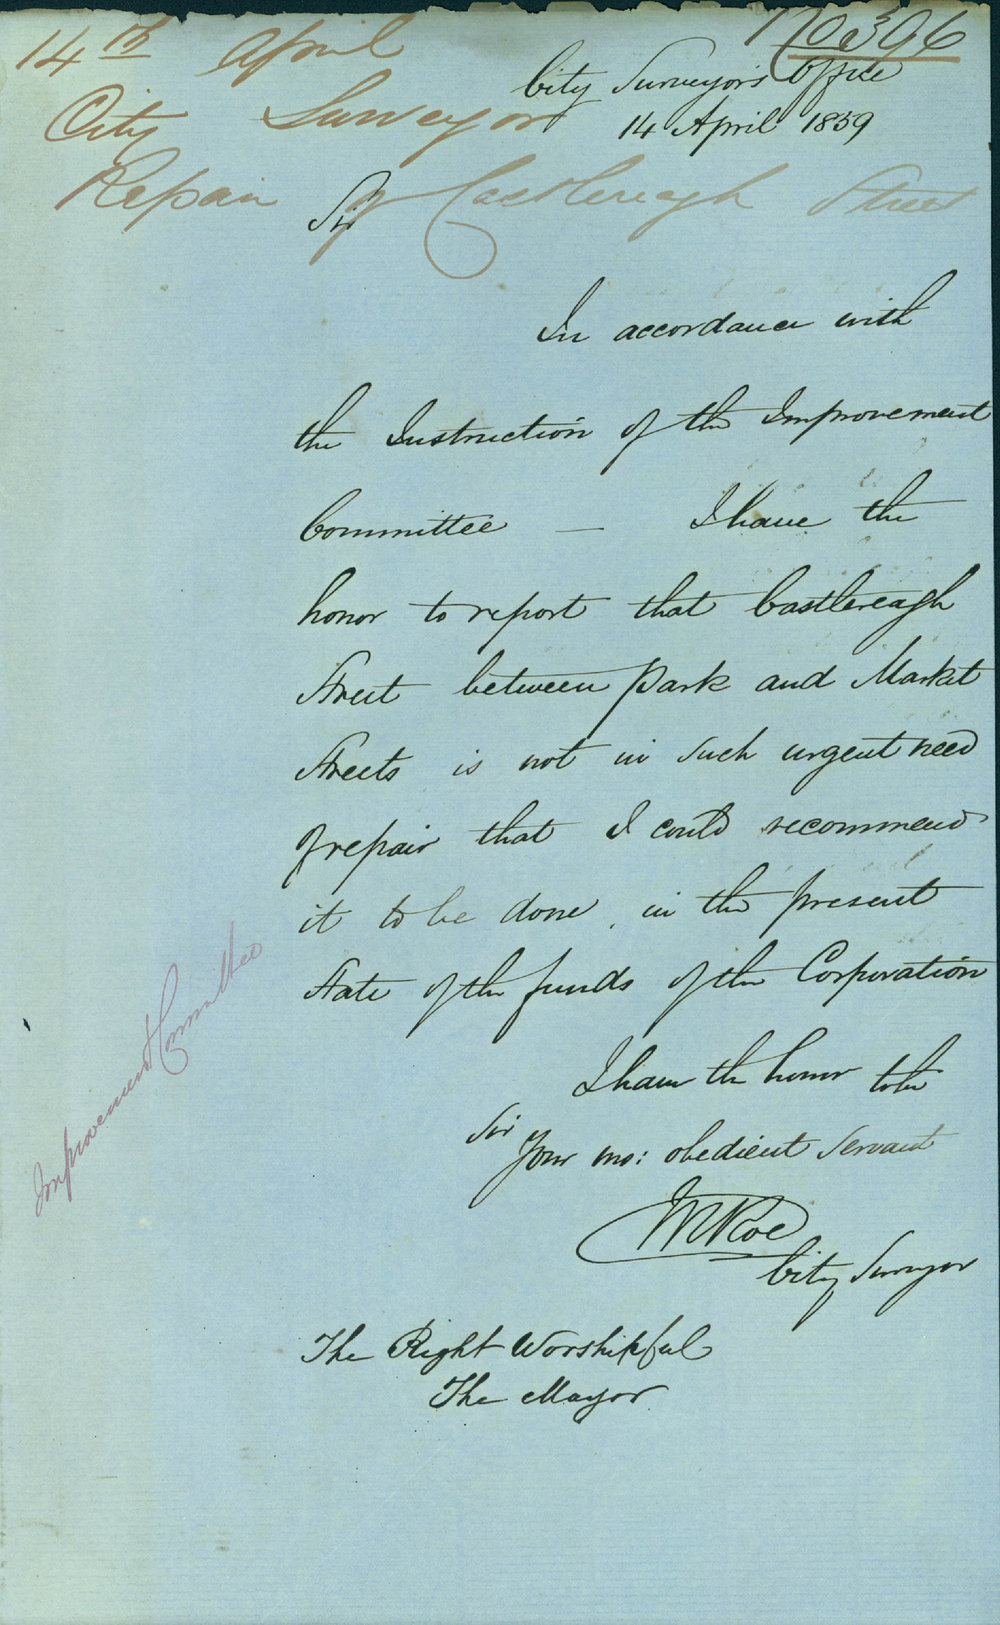 No 396
14th April
City Surveyor
Repair of Castlereagh Street
City Surveyor's Office
14 April 1859
Sir
In accordance with
the Instruction of the Improvement
Committee — I have the
honor to report that Castlereagh
Street between Park and Market
Streets is not in such urgent need
of repair that I could recommend
it to be done, in the present
State of the funds of the Corporation
I have the honor to be
Sir
Your mo: obedient Servant
WRoe
City Surveyor
The Right Worshipful
The Mayor
Improvement Committee